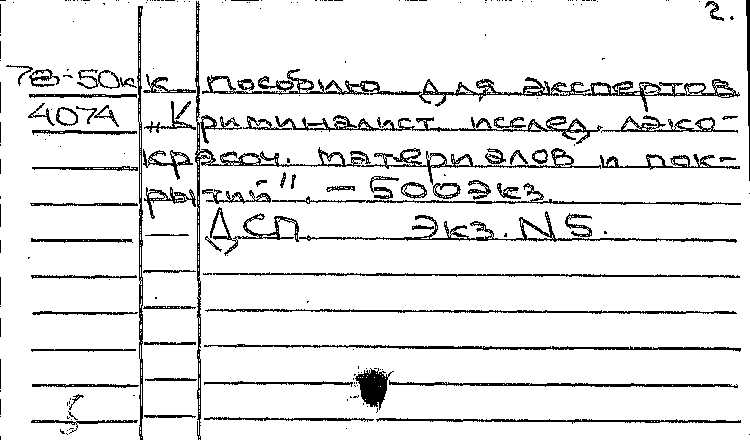 2.
78-50к к пособию для экспертов
4074 „Криминалист. исслед. лако-
красоч. материалов и пок-
рытий". - 500экз.
ДСП. Экз. N5.